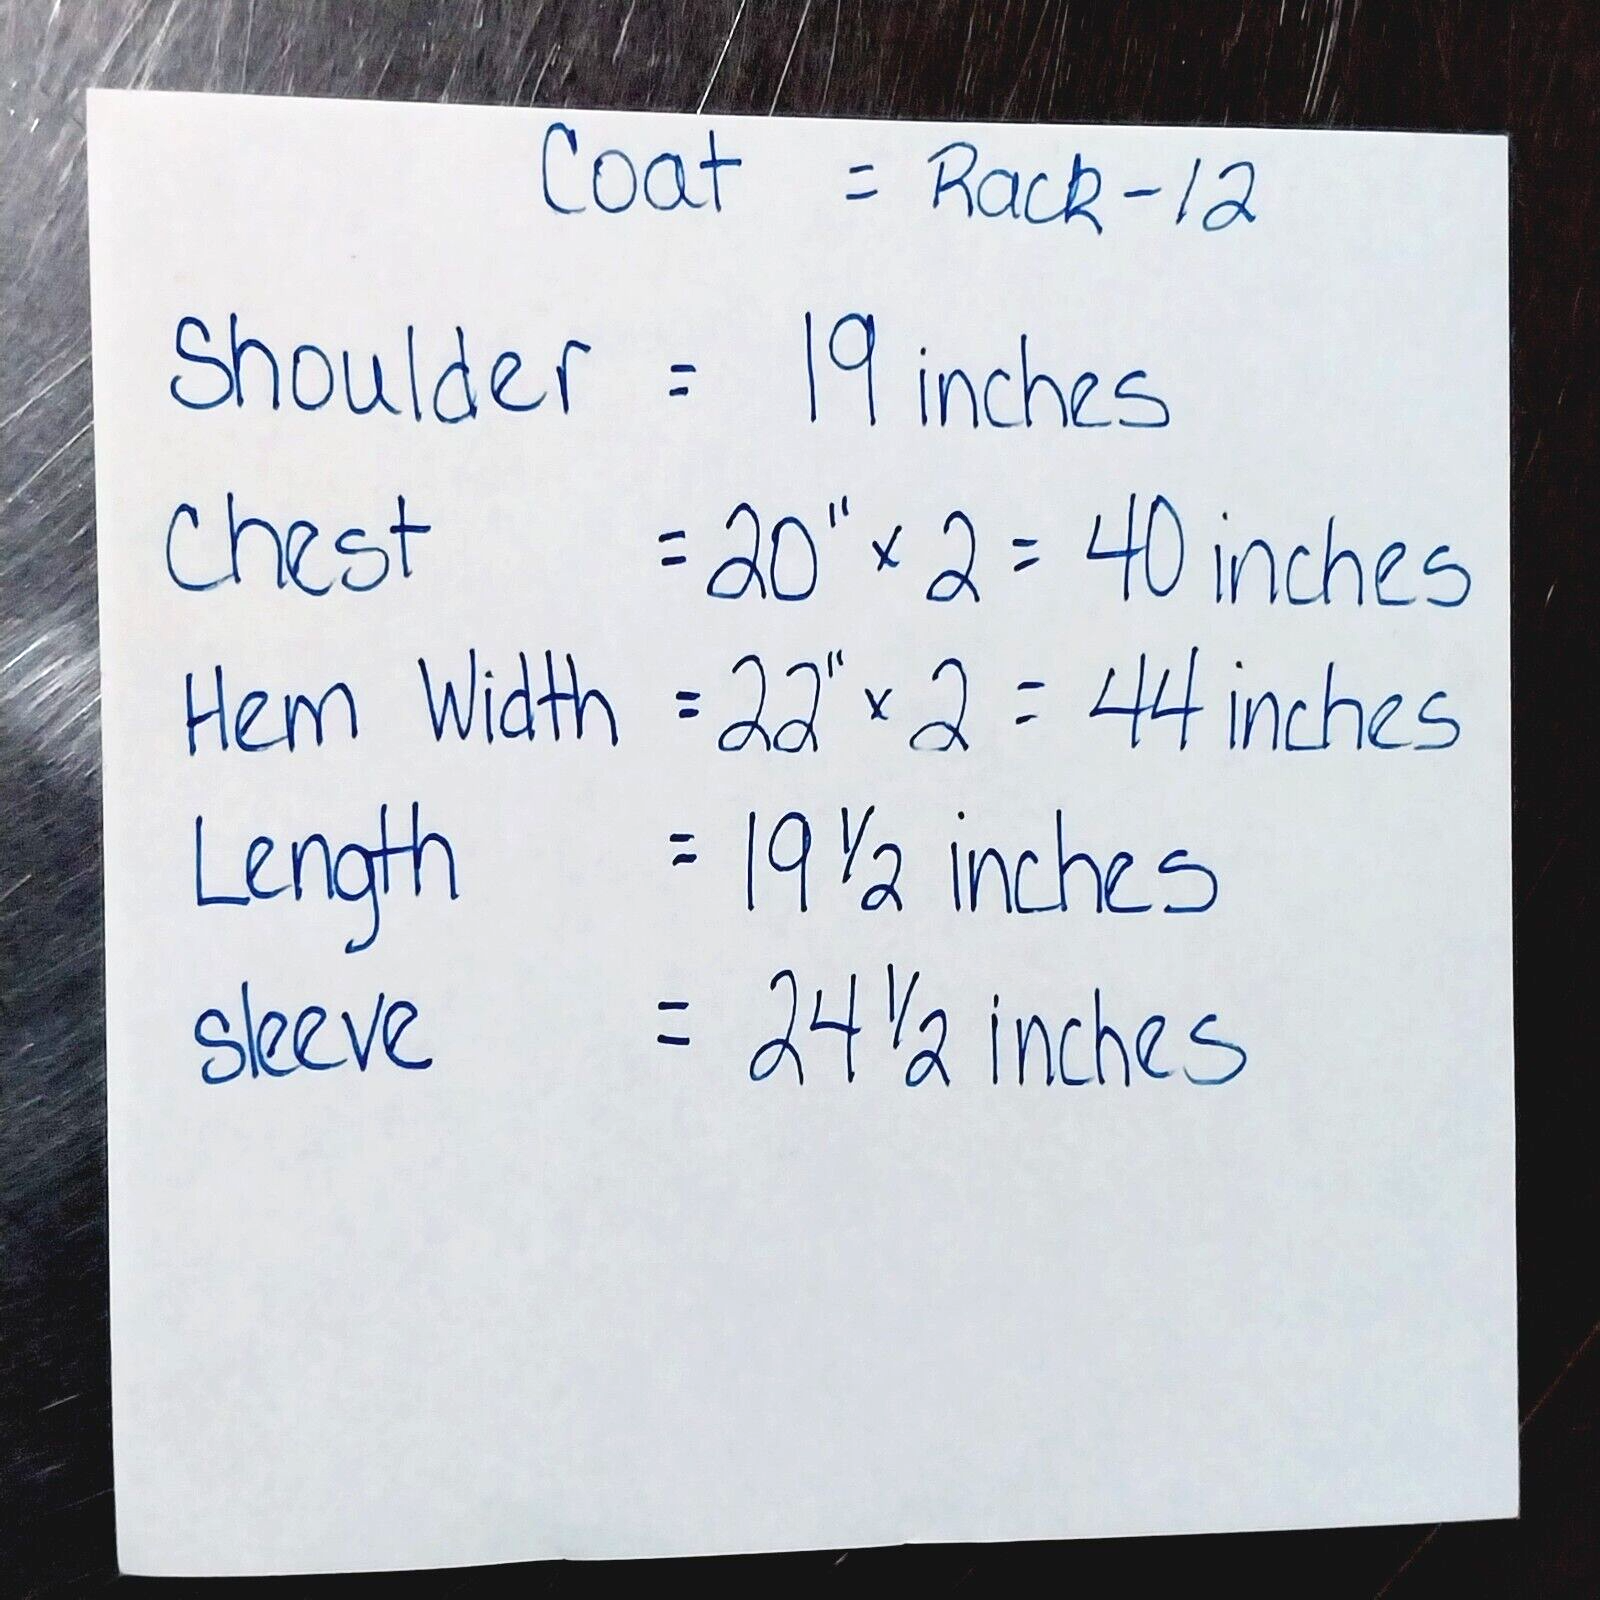 Coat = Rack-12
Shoulder = 19 inches
Chest = 20" x 2 = 40 inches
Hem Width = 22" x 2 = 44 inches
Length = 19 1/2 inches
Sleeve = 24 1/2 inches